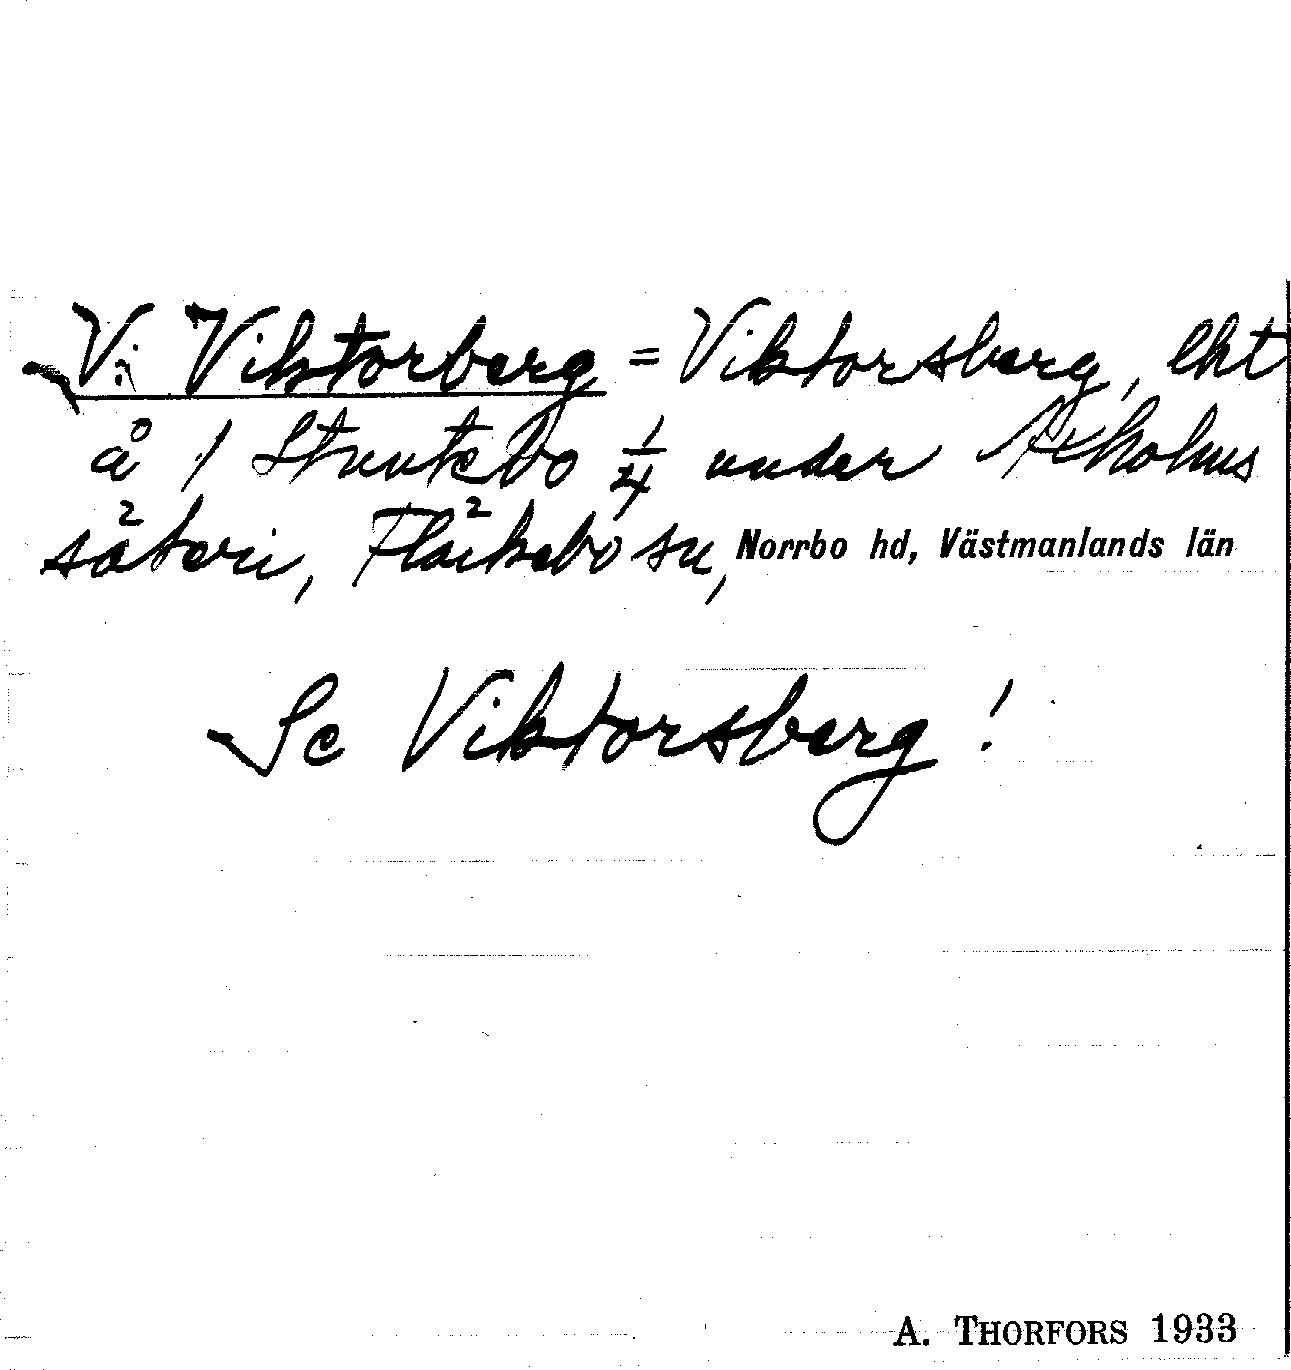 V: Viktorberg = Viktorsberg, lht
å 1 Struntebo 1/4 under Arkhohus
säteri, Fläckebo sn, Norrbo hd, Västmanlands län
Se Viktorsberg!
A. THORFORS 1933